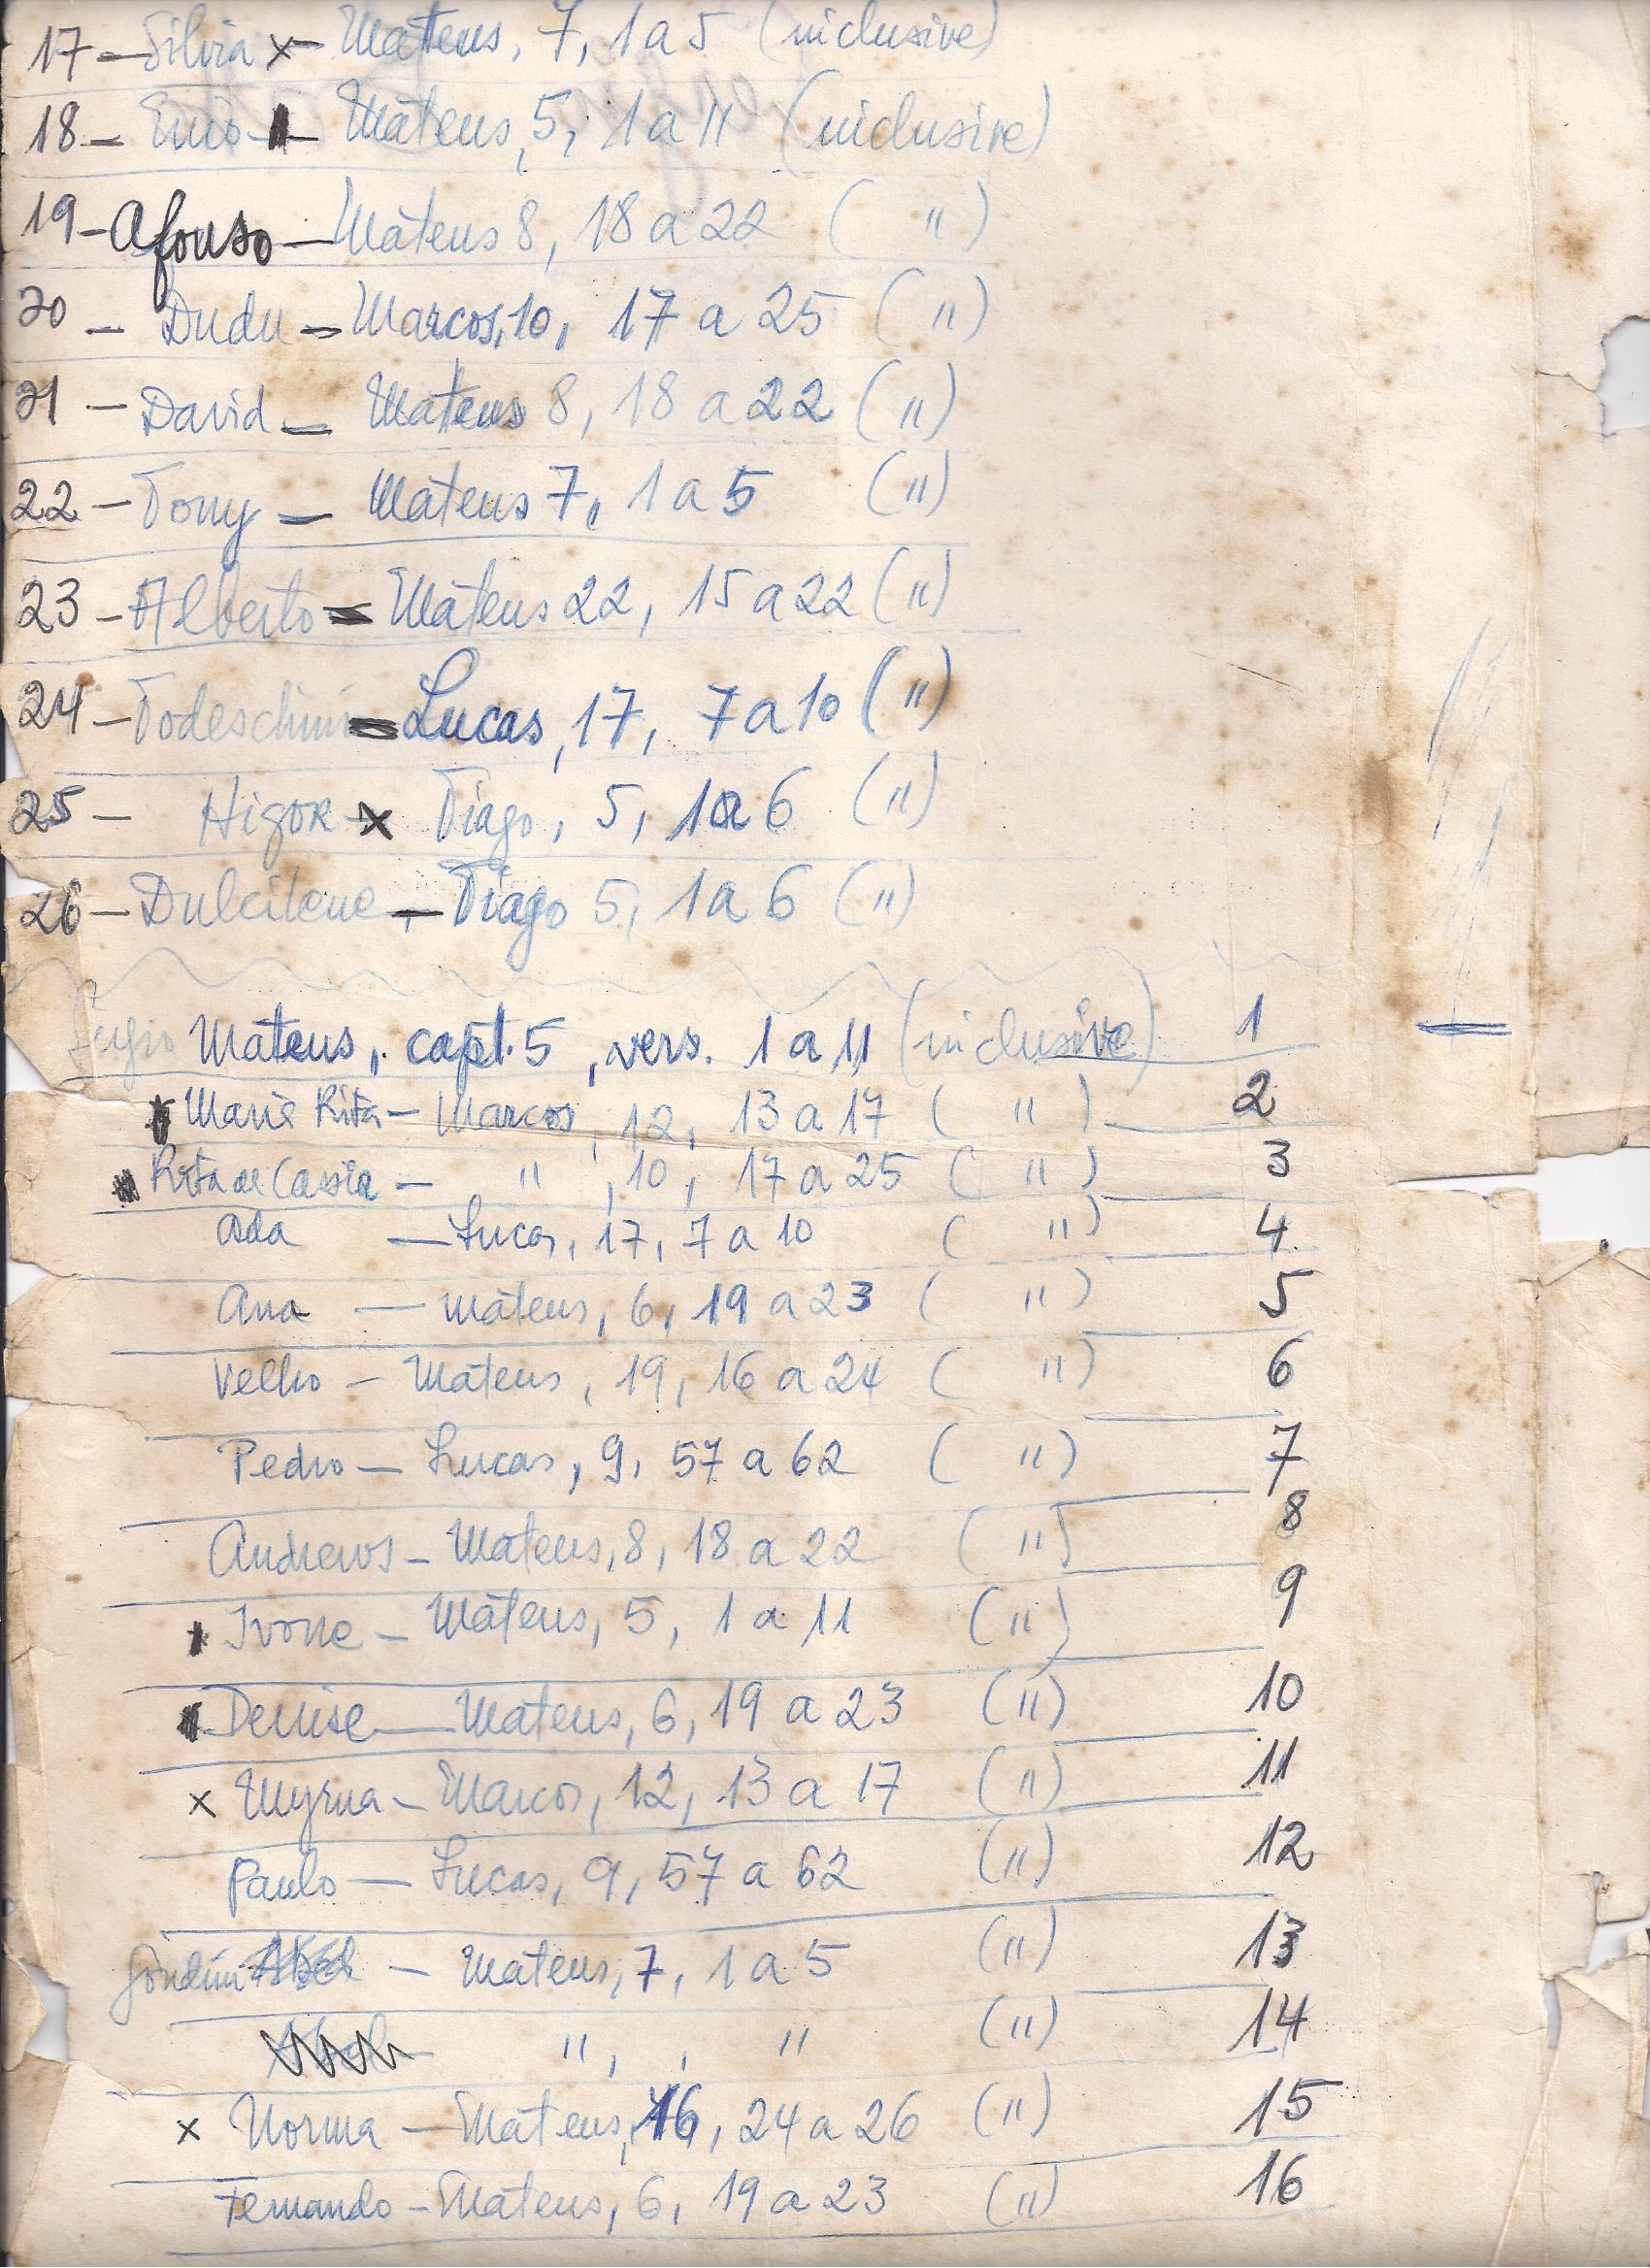 17 - Silvia x - Mateus, 7, 1 a 5 (inclusive)
18 - Enio - Mateus, 5, 1 a 11 (inclusive)
19 - Afonso - Mateus 8, 18 a 22 ( " )
20 - Dudu - Marcos, 10, 17 a 25 ( " )
21 - David - Mateus 8, 18 a 22 ( " )
22 - Tony - Mateus 7, 1 a 5 ( " )
23 - Alberto = Mateus 22, 15 a 22 ( " )
24 - Todeschini = Lucas, 17, 7 a 10 ( " )
25 - Higor x Tiago, 5, 1 a 6 ( " )
26 - Dulcilene - Tiago 5, 1 a 6 ( " )
Mateus, capt. 5, vers. 1 a 11 (inclusive) 1
Maria Rita - Marcos, 12, 13 a 17 ( " ) 2
Rita de Cassia - " , 10, 17 a 25 ( " ) 3
Ada - Lucas, 17, 7 a 10 ( " ) 4
Ana - Mateus, 6, 19 a 23 ( " ) 5
Velho - Mateus, 19, 16 a 24 ( " ) 6
Pedro - Lucas, 9, 57 a 62 ( " ) 7
Andrews - Mateus, 8, 18 a 22 ( " ) 8
Ivone - Mateus, 5, 1 a 11 ( " ) 9
Denise - Mateus, 6, 19 a 23 ( " ) 10
x Myrna - Marcos, 12, 13 a 17 ( " ) 11
Paulo - Lucas, 9, 57 a 62 ( " ) 12
Gondim - Mateus, 7, 1 a 5 ( " ) 13
" , , " ( " ) 14
x Norma - Mateus, 16, 24 a 26 ( " ) 15
Fernando - Mateus, 6, 19 a 23 ( " ) 16